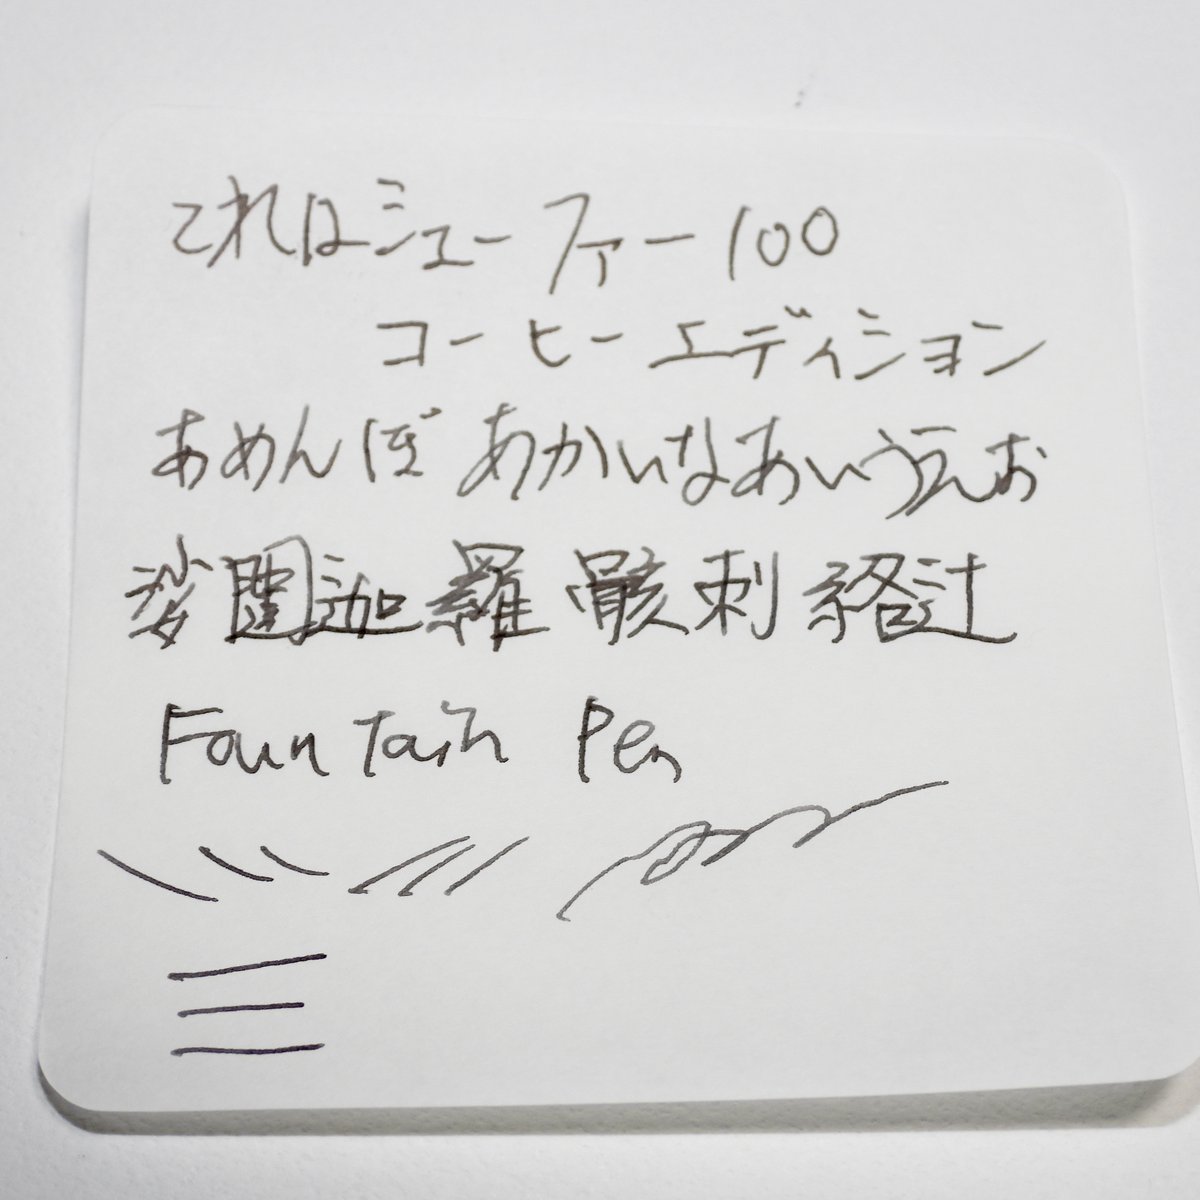 これはシェーファー100
コーヒーエディション
あめんぼあかいなあいうえお
娑闍迦羅骸刺絡辻
Fountain Pen